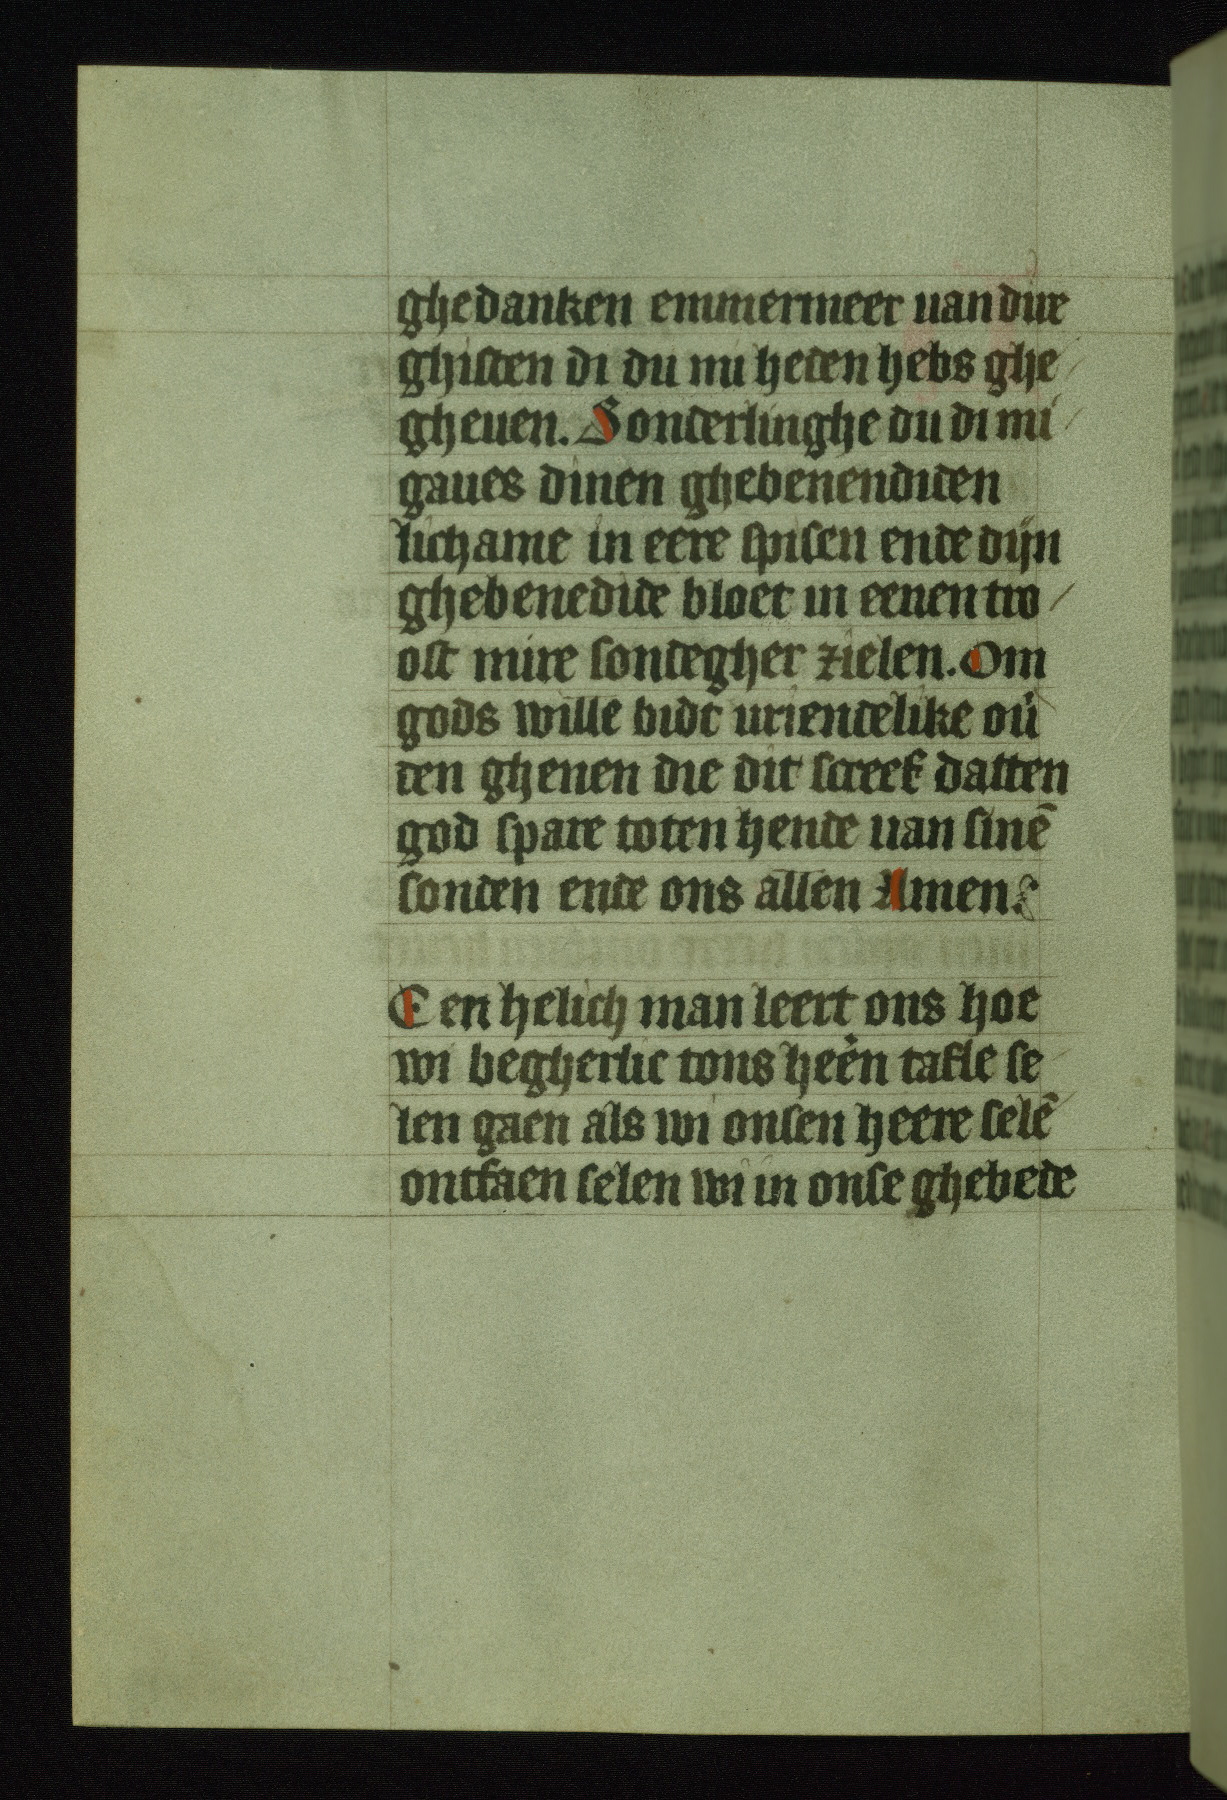 ghedanken emmermeer uan dire
ghiften di du mi heden hebs ghe
gheuen. Sonderlinghe du di mi
gaues dinen ghebenendiden
lichame in eere spisen ende dijn
ghebenedide bloet in eenen tro
ost mire sondegher zielen. Om
gods wille bidt uriendelike ou̇
den ghenen die dit screef datten
god spare toten hende uan sinē
sonden ende ons allen Amen.
Een helich man leert ons hoe
wi begherlic tons heėn tafle se
len gaen als wi onsen heere selē
ontfaen selen wi in onse ghebede